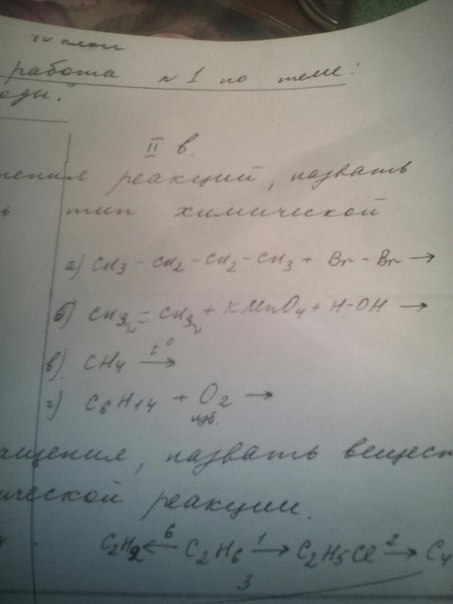 работа №1 по теме:
оды."
II в.
нения реакций, назвать
ь тип химической
а) CH3 - CH2 - CH2 - CH3 + Br - Br →
б) CH2 = CH2 + KMnO4 + H-OH →
в) CH4 t° →
г) C6H14 + O2 →
изб.
ащения, назвать вещест
ической реакции.
C2H2 ←6 C2H6 1→ C2H5Cl 2→ C4
3